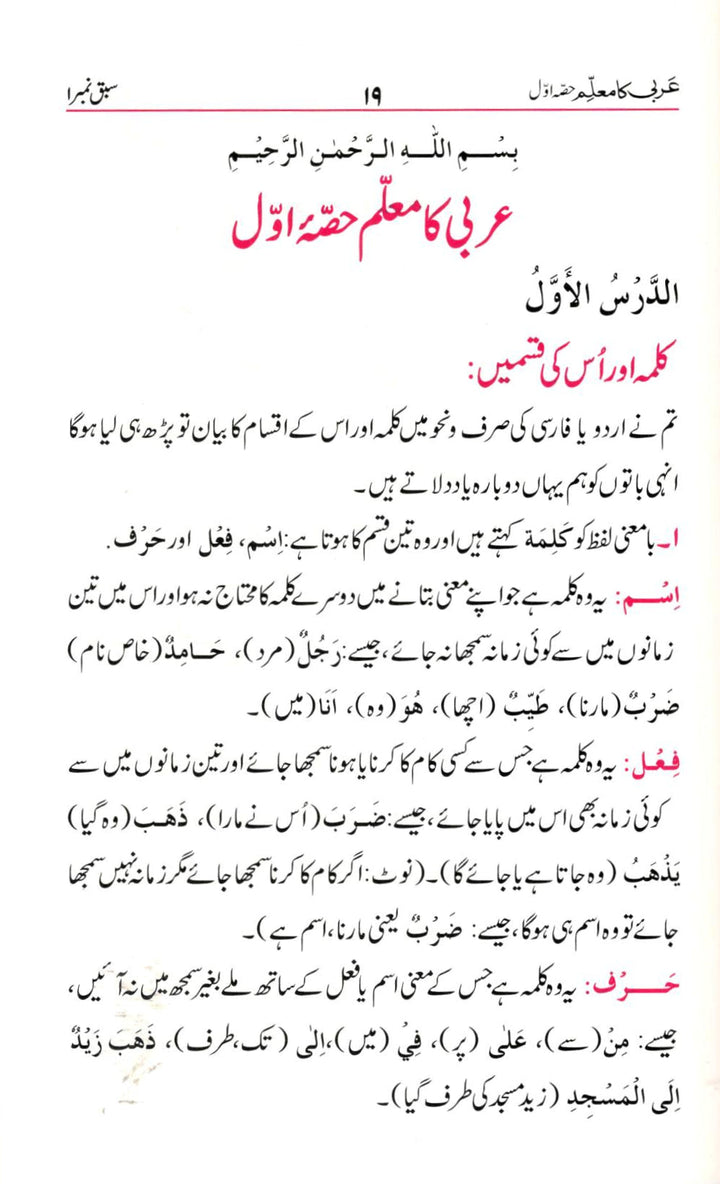 عَربی کا معلّم حصّہ اوّل ۱۹ سبق نمبر۱
بِسْمِ اللّٰهِ الرَّحْمٰنِ الرَّحِيْمِ
عربی کا معلّم حصّۂ اوّل
الدَّرْسُ الأَوَّلُ
کلمہ اور اُس کی قسمیں:
تم نے اردو یا فارسی کی صرف ونحو میں کلمہ اور اس کے اقسام کا بیان تو پڑھ ہی لیا ہوگا
انہی باتوں کو ہم یہاں دوبارہ یاد دلاتے ہیں۔
۱۔ بامعنی لفظ کو كَلِمَة کہتے ہیں اور وہ تین قسم کا ہوتا ہے: اِسْم، فِعْل اور حَرْف.
اِسْم: یہ وہ کلمہ ہے جو اپنے معنی بتانے میں دوسرے کلمہ کا محتاج نہ ہو اور اس میں تین
زمانوں میں سے کوئی زمانہ سمجھا نہ جائے، جیسے: رَجُلٌ (مرد)، حَامِدٌ (خاص نام)
ضَرْبٌ (مارنا)، طَيِّبٌ (اچھا)، هُوَ (وہ)، اَنَا (میں)۔
فِعْل: یہ وہ کلمہ ہے جس سے کسی کام کا کرنا یا ہونا سمجھا جائے اور تین زمانوں میں سے
کوئی زمانہ بھی اس میں پایا جائے، جیسے: ضَرَبَ (اُس نے مارا)، ذَهَبَ (وہ گیا)
يَذْهَبُ (وہ جاتا ہے یا جائے گا)۔ (نوٹ: اگر کام کا کرنا سمجھا جائے مگر زمانہ نہیں سمجھا
جائے تو وہ اسم ہی ہوگا، جیسے: ضَرْبٌ یعنی مارنا، اسم ہے)۔
حَرْف: یہ وہ کلمہ ہے جس کے معنی اسم یا فعل کے ساتھ ملے بغیر سمجھ میں نہ آئیں،
جیسے: مِنْ (سے)، عَلٰى (پر)، فِيْ (میں)، اِلٰى (تک، طرف)، ذَهَبَ زَيْدٌ
اِلَى الْمَسْجِدِ (زید مسجد کی طرف گیا)۔